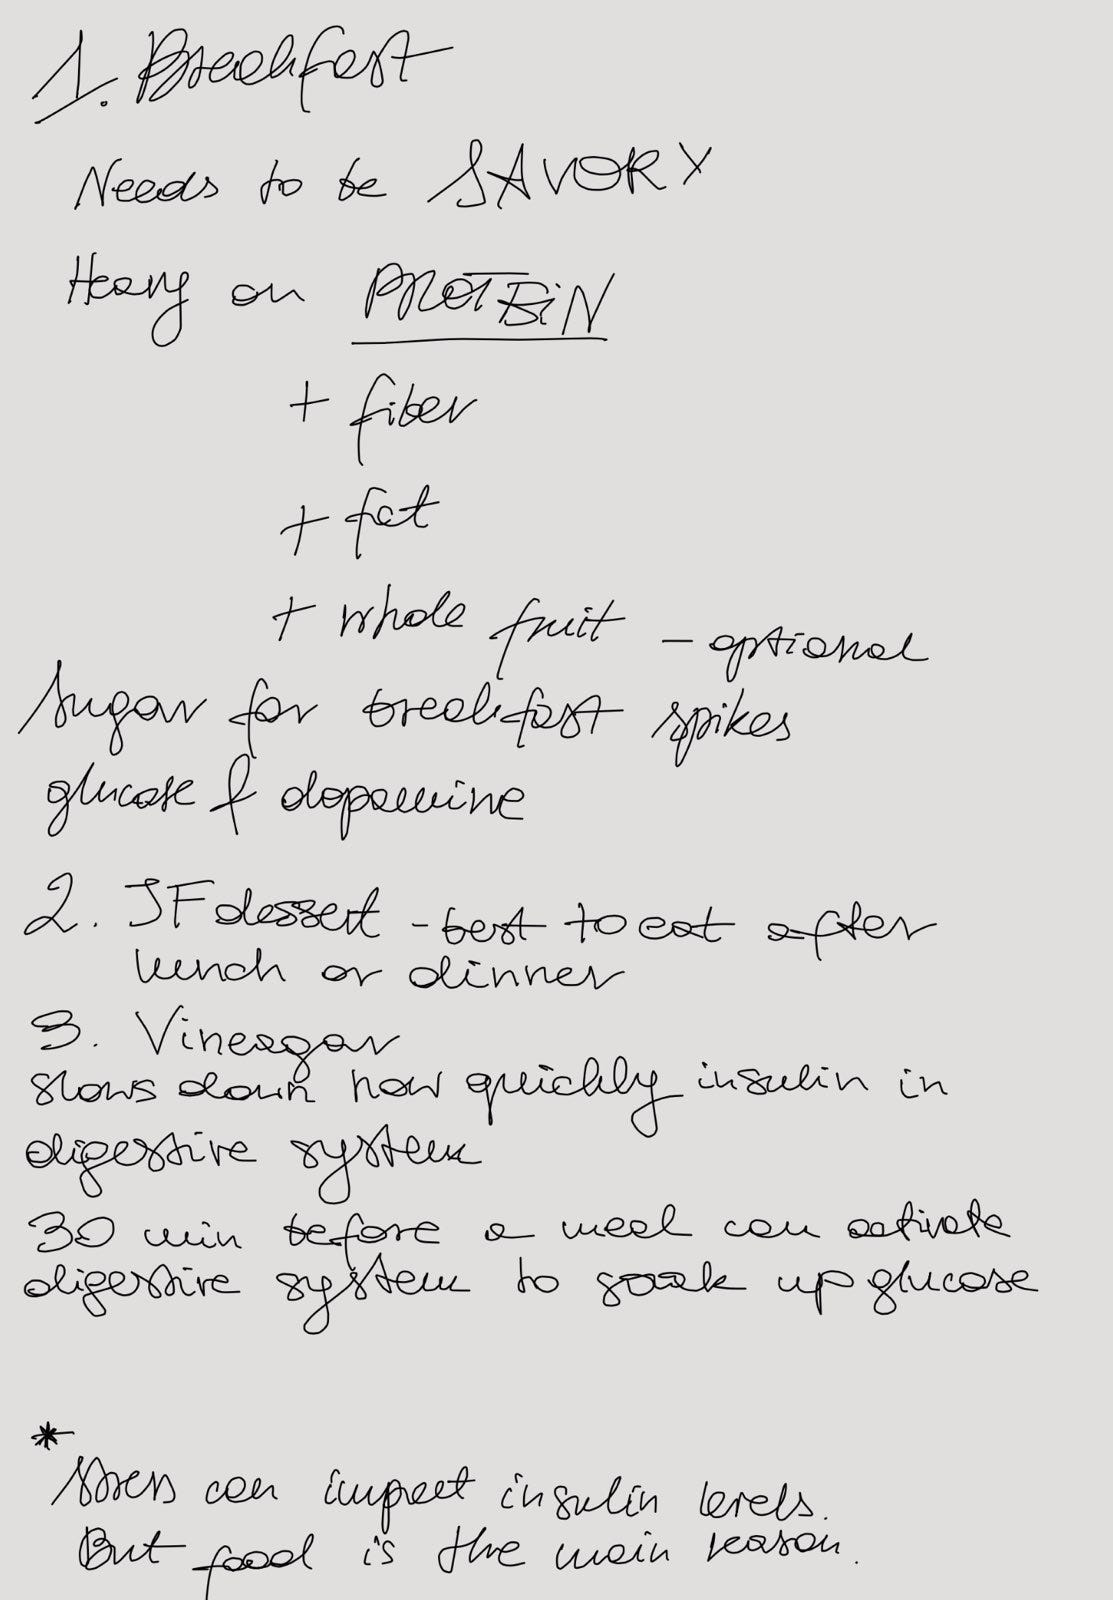 1. Breakfast
Needs to be SAVORY
Heavy on PROTEIN
+ fiber
+ fat
+ whole fruit - optional
Sugar for breakfast spikes
glucose & dopamine
2. IF dessert - best to eat after
lunch or dinner
3. Vineagar
slows down how quickly insulin in
digestive system
30 min before a meal can activate
digestive system to soak up glucose
*
Stress can impact insulin levels.
But food is the main reason.